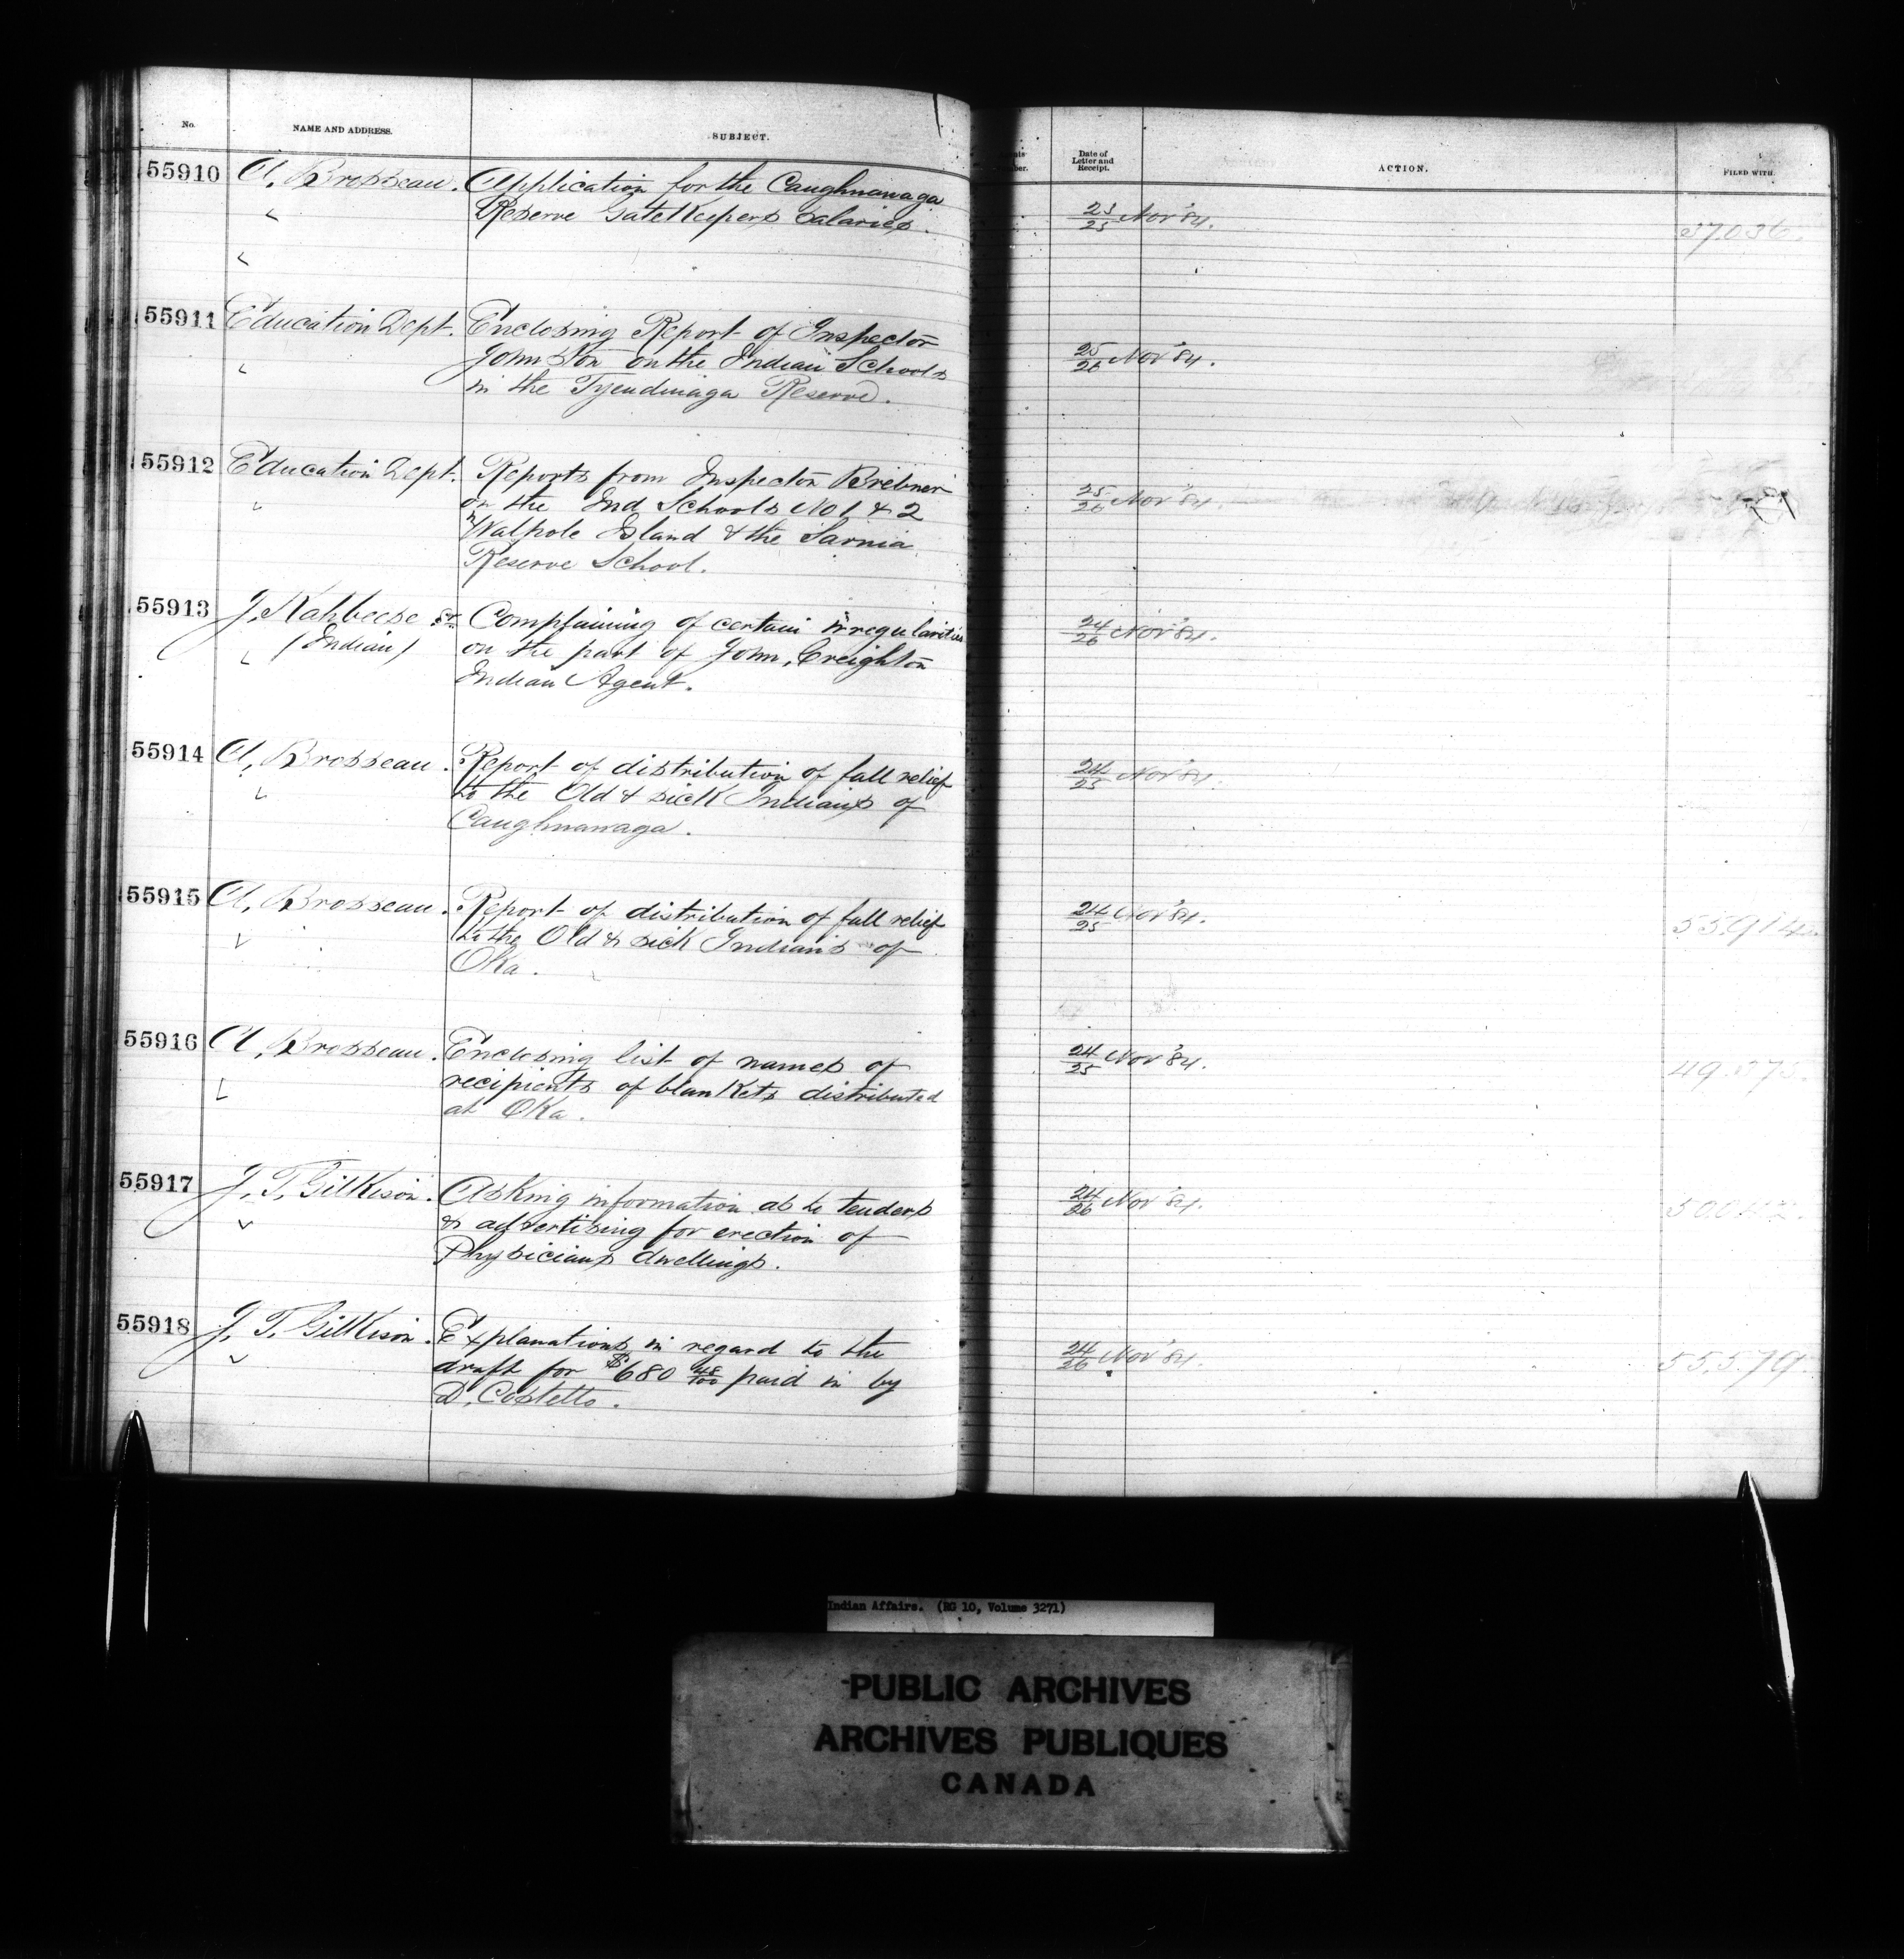 No.
NAME AND ADDRESS.
SUBJECT.
Date of
Letter and
Receipt.
ACTION.
FILED WITH.
55910
A. Brosseau.
Application for the Caughnawaga
Reserve Gate Keepers Salaries.
25 Nov '84.
55911
Education Dept.
Enclosing Report of Inspector
Johnston on the Indian Schools
in the Tyendinaga Reserve.
25/26 Nov '84.
55912
Education Dept.
Reports from Inspector Brebner
on the Ind Schools No 1 & 2
Walpole Island & the Sarnia
Reserve School.
25/26 Nov '84.
55913
J. Kahbeese Sr.
(Indian)
Complaining of certain irregularities
on the part of John, Creighton
Indian Agent.
24/26 Nov '84.
55914
A. Brosseau.
Report of distribution of fall relief
to the Old & sick Indians of
Caughnawaga.
24/25 Nov '84.
55915
A. Brosseau.
Report of distribution of fall relief
to the Old & sick Indians of
Oka.
24/25 Nov '84.
55.914
55916
A. Brosseau.
Enclosing list of names of
recipients of blankets distributed
at Oka.
24/25 Nov '84.
55917
J. T. Gilkison.
Asking information as to tenders
& advertising for erection of
Physicians dwellings.
24/26 Nov '84.
55918
J. T. Gilkison.
Explanations in regard to the
draft for $680 48/100 paid in by
D. Costello.
24/26 Nov '84.
55.579
Indian Affairs. (RG 10, Volume 3271)
PUBLIC ARCHIVES
ARCHIVES PUBLIQUES
CANADA